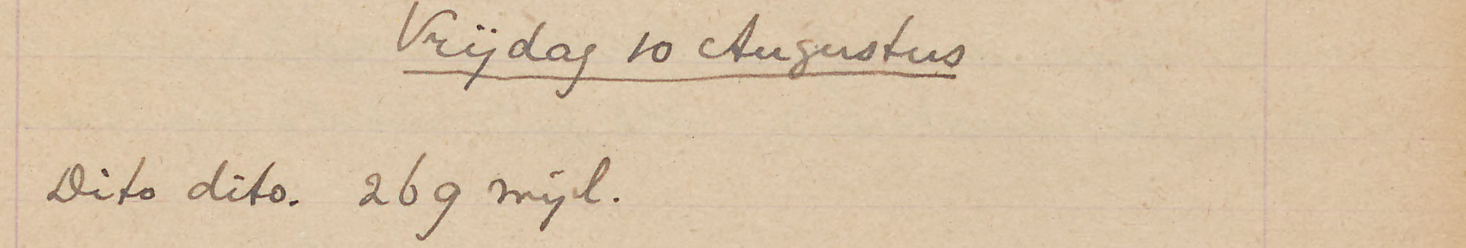 Vrijdag 10 Augustus
Dito dito. 269 mijl.